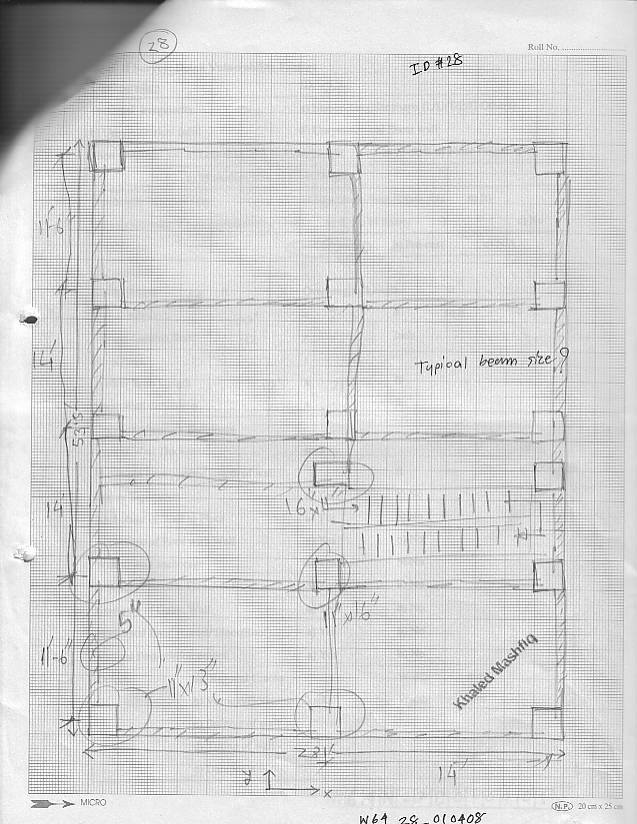 28
Roll No.
ID #28
11'-6"
14'
Typical beam size?
53'.5
14'
16"x11"
5"
11"x16"
11'-6"
11"x13"
Khaled Mashfiq
14'
y
x
MICRO
N.P. 20 cm x 25 cm
W64 28_010408